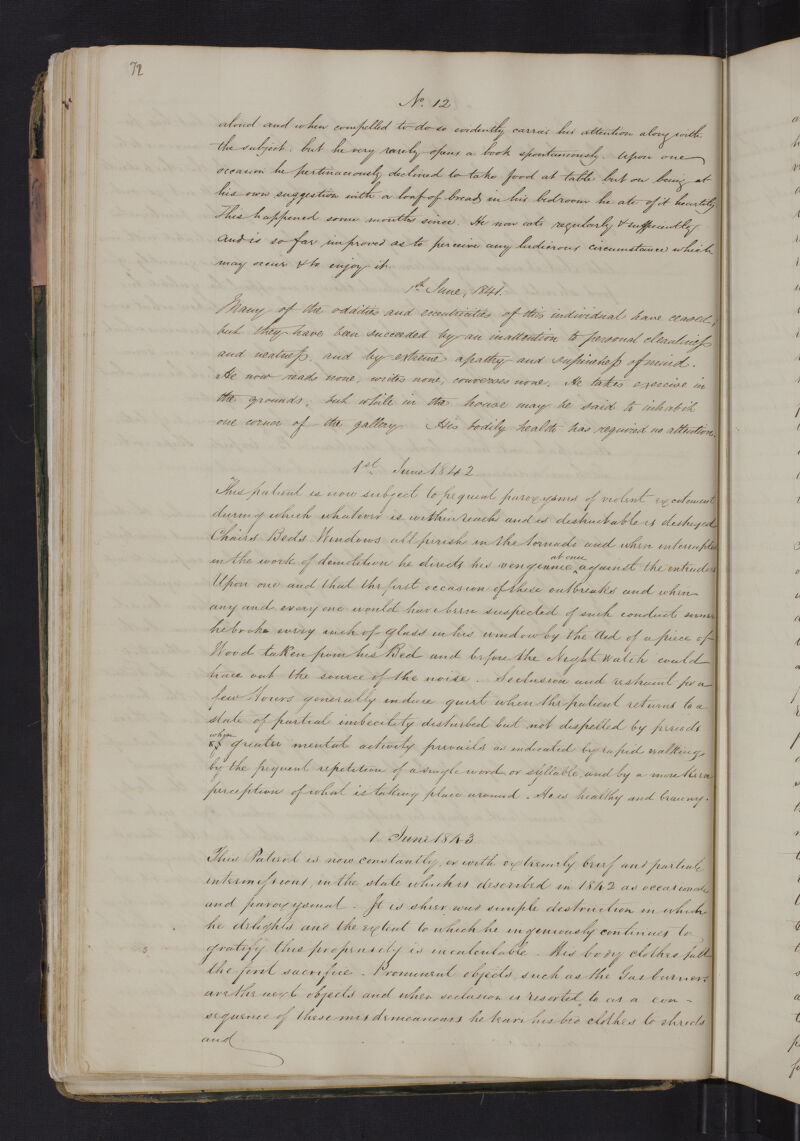 72
No. 12
aloud and when compelled to do so evidently carries his attention along with
the subject. but he very rarely opens a book spontaneously. Upon one
occasion he pertinaciously declined to take food at table but on being at
his own suggestion with a loaf of bread in his bedroom he ate of it heartily
This happened some months since. He now eats regularly & sufficiently
and is so far improved as to perceive any ludicrous circumstance which
may occur & to enjoy it.
1st June, 1841.
Many of the oddities and eccentricities of this individual have ceased;
but they have been succeeded by an inattention to personal cleanliness
and neatness, and by extreme apathy and supineness of mind.
He now reads none, writes none, converses none. He takes exercise in
the grounds; but while in the house may be said to inhabit
one corner of the gallery. His bodily health has required no attention.
1st June 1842
This patient is now subject to frequent paroxysms of violent excitement
during which whatever is within reach and is destructable is destroyed
Chairs Beds Windows all perish in the tornado and when interrupted
in the work of demolition he directs his vengeance at once against the intruders
Upon one and that the first occasion of these outbreaks and when
any and every one would have been suspected of such conduct sooner
he broke every inch of glass in his window by the aid of a piece of
Wood taken from his Bed and before the Night Watch could
trace out the source of the noise. Seclusion and restraint for a
few hours generally induce quiet when the patient returns to a
state of partial imbecility disturbed but not dispelled by periods
when greater mental activity prevails as indicated by rapid walking
by the frequent repetition of a single word or syllable, and by a more keen
perception of what is taking place around. He is healthy and brawny.
1 June 1843
This Patient is now constantly, or with extremely brief and partial
intermissions, in the state which is described in 1842 as occasional
and paroxysmal. It is sheer and simple destruction in which
he delights and the extent to which he ingeniously continues to
gratify this propensity is incalculable. His body clothes fall
the first sacrifice. Prominent objects, such as the Gas burners
are the next objects and when seclusion is resorted to as a con-
sequence of these misdemeanours he tears his bed clothes to shreds
and